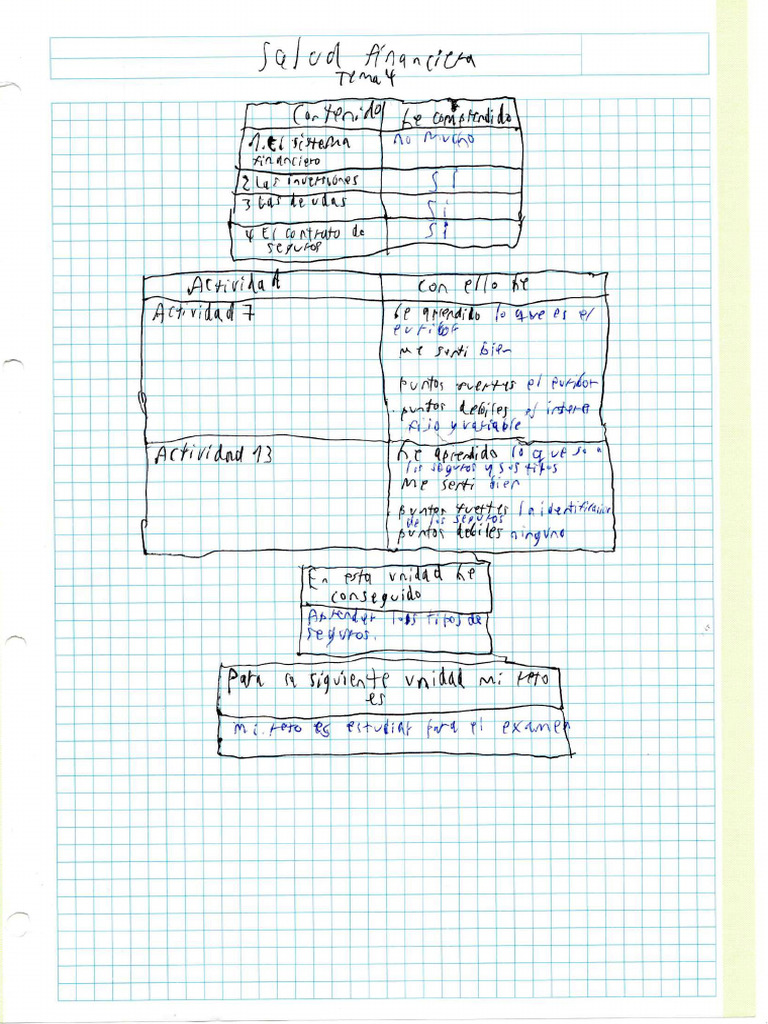 Salud financiera
Tema 4
Contenido he comprendido
1. El sistema no mucho
financiero
2 Las inversiones Si
3 Las deudas Si
4 El contrato de Si
seguros
Actividad con ello he
Actividad 7 he aprendido lo que es el
euribor
me sentí bien
puntos fuertes el euribor
puntos debiles el interes
fijo y variable
Actividad 13 he aprendido lo que so n
los seguros y sus tipos
Me sentí bien
puntos fuertes la identificacion
de los seguros
puntos debiles ninguno
En esta unidad he
conseguido
Aprender los tipos de
seguros.
Para la siguiente unidad mi reto
es
mi reto es estudiar para el examen